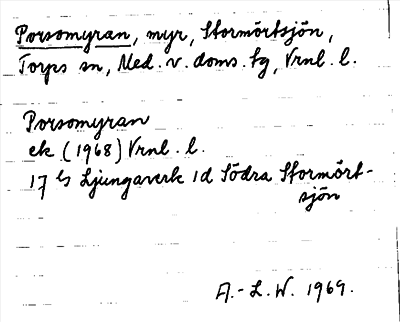 Porsomyran, myr, Stormörtsjön,
Torps sn, Med. v. doms. tg, Vrnl. l.
Porsomyran
ek (1968) Vrnl. l.
17 G Ljungaverk 1d Södra Stormört-
sjön
A.-L.W. 1969.